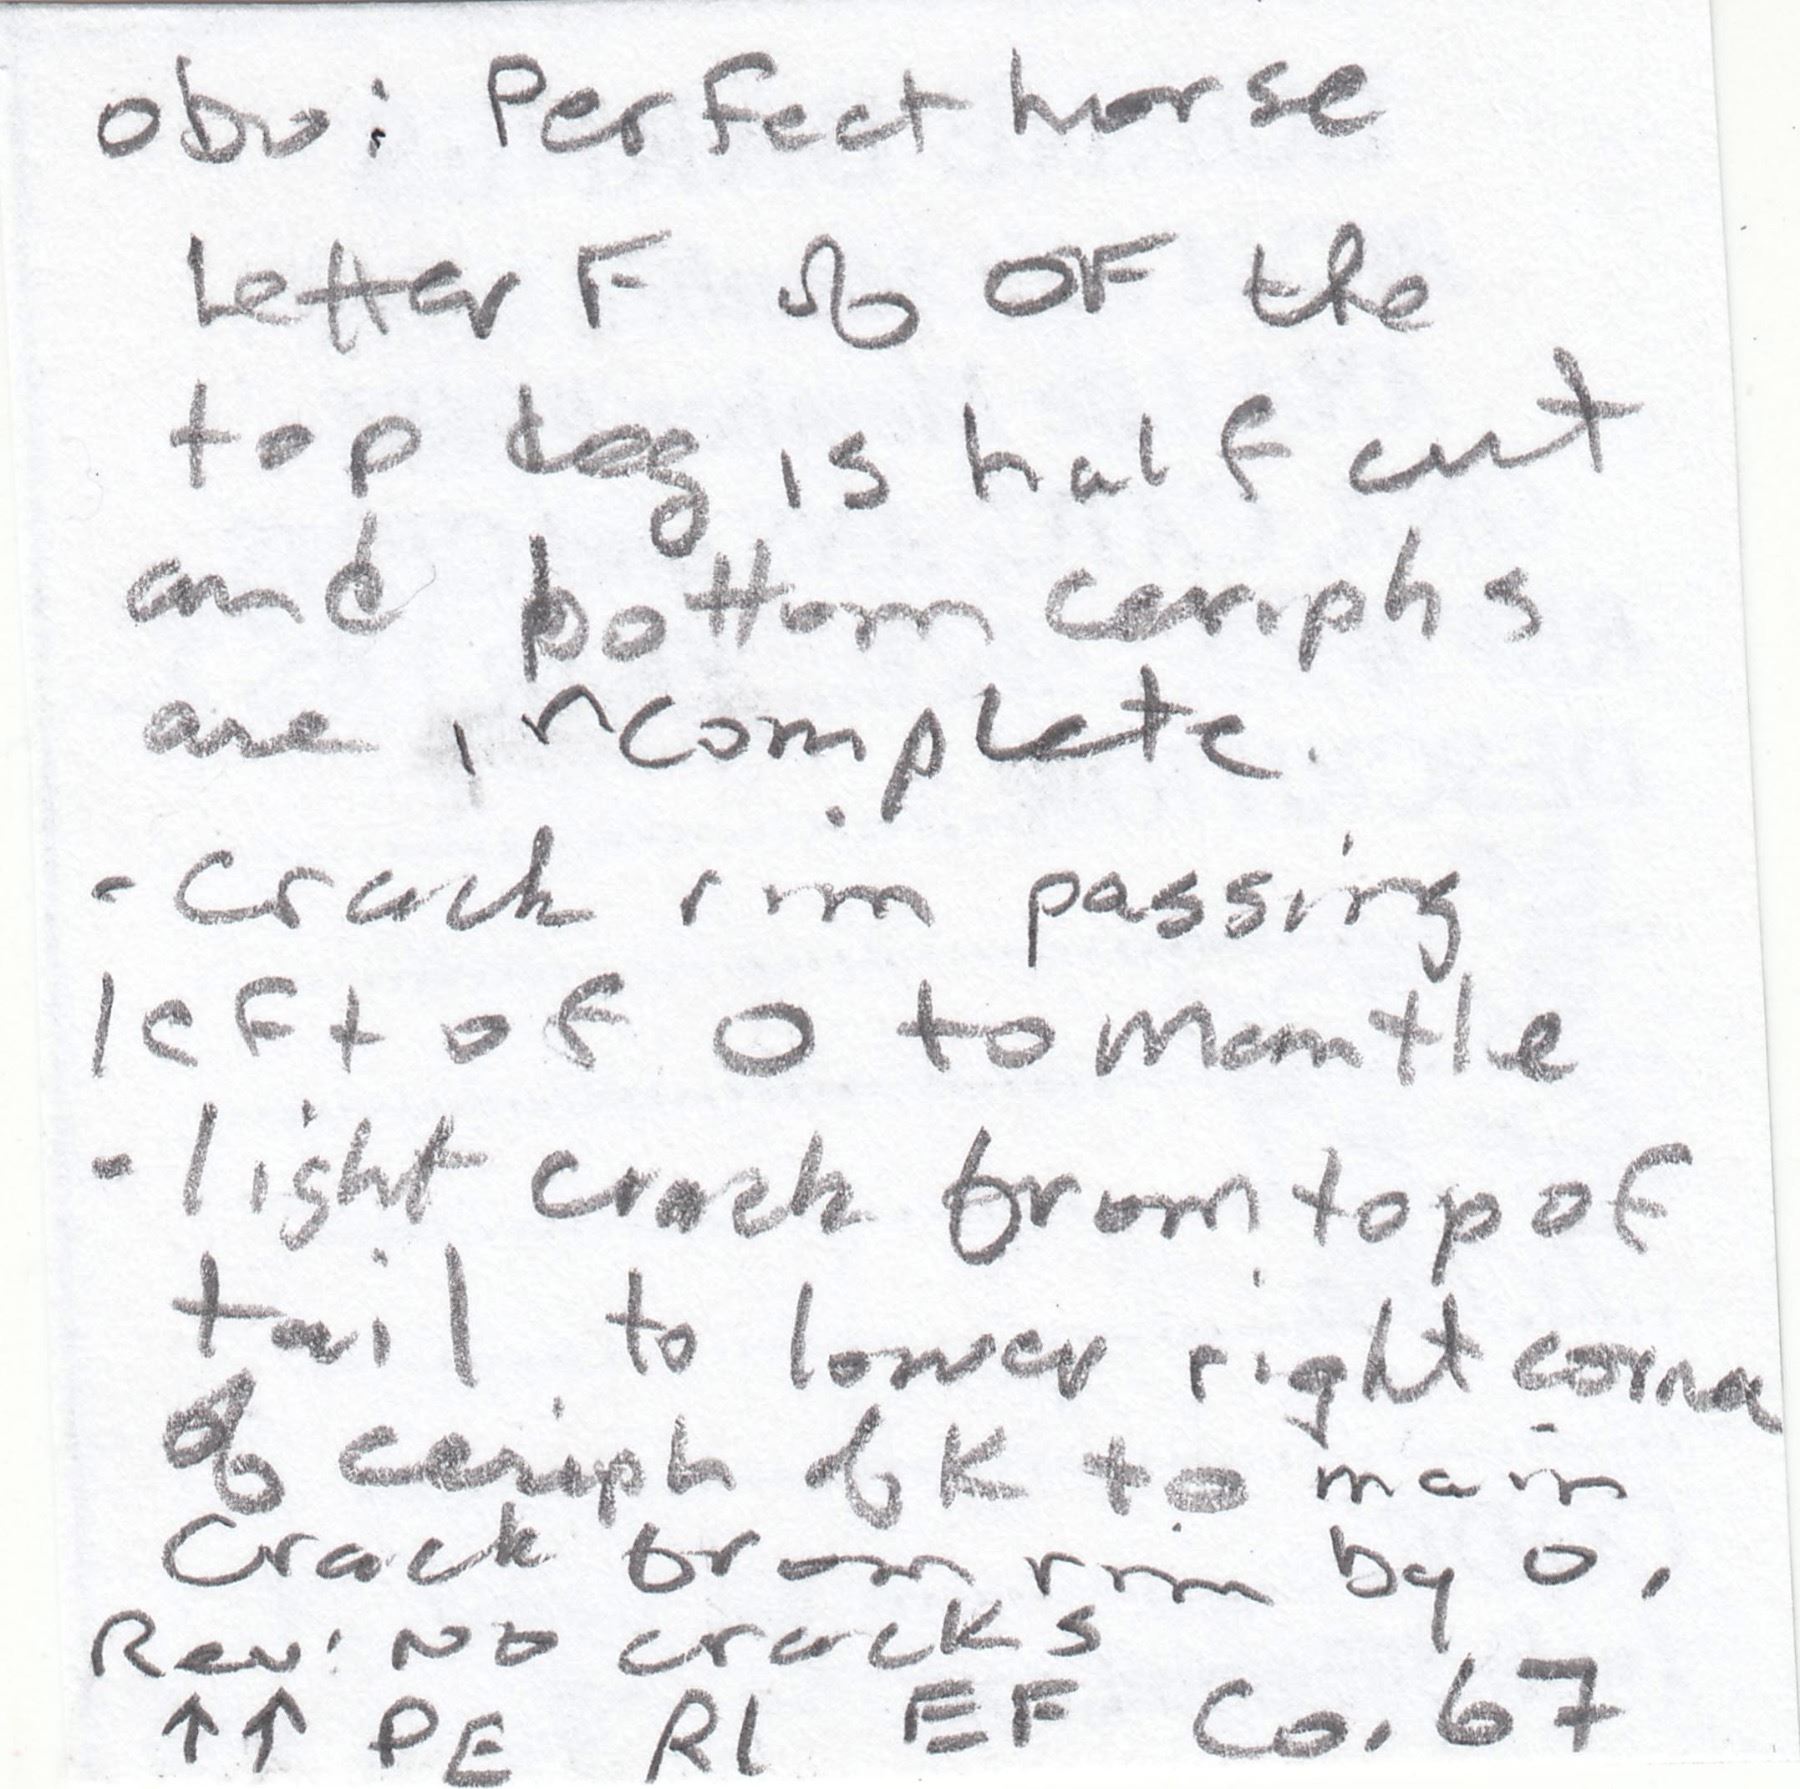 obv: Perfect horse
Letter F of OF the
top leg is half cut
and bottom ceriphs
are incomplete.
- Crack rim passing
left of O to Mantle
- light crack from top of
tail to lower right corner
of ceriph of K to main
Crack from rim by O.
Rev: No cracks
↑↑ PE R1 EF Co. 67